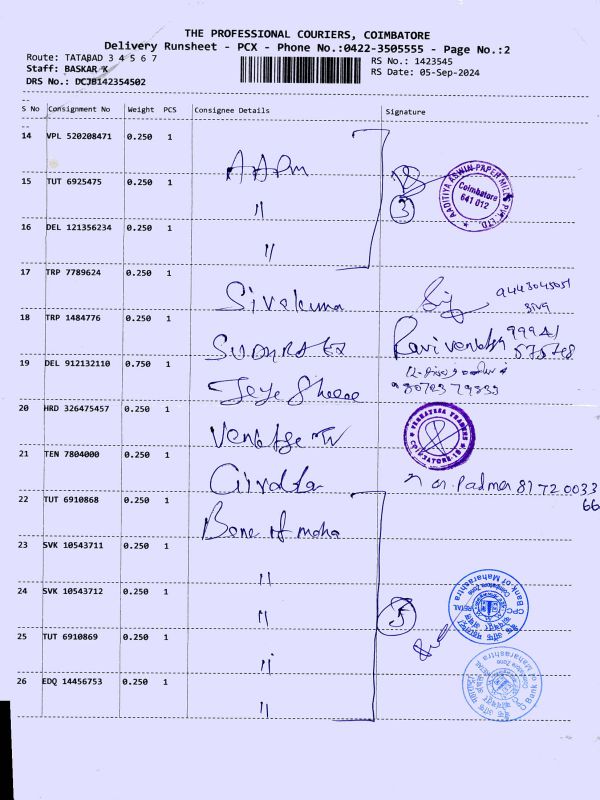 THE PROFESSIONAL COURIERS, COIMBATORE
Delivery Runsheet - PCX - Phone No.:0422-3505555 - Page No.:2
Route: TATABAD 3 4 5 6 7
RS No.: 1423545
Staff: BASKAR K
RS Date: 05-Sep-2024
DRS No.: DCJB142354502
S No Consignment No Weight PCS Consignee Details Signature
14 VPL 520208471 0.250 1 AAPM
15 TUT 6925475 0.250 1 "
3
AADITIYA ASWIN PAPER MILLS PVT. LTD.
Coimbatore
641 012
16 DEL 121356234 0.250 1 "
17 TRP 7789624 0.250 1 Sivakuma
siva
18 TRP 1484776 0.250 1 SUDHRATEX
Ravi venkatesh 99941
19 DEL 912132110 0.750 1 Jeye Sheele
20 HRD 326475457 0.250 1
VENKATESA TRADERS
COIMBATORE-18
21 TEN 7804000 0.250 1
Padma 81720033
66
22 TUT 6910868 0.250 1 Bank of maha
23 SVK 10543711 0.250 1 "
24 SVK 10543712 0.250 1 "
5
CPC Bank of Maharashtra
Coimbatore Zone
RETAIL
25 TUT 6910869 0.250 1 "
26 EDQ 14456753 0.250 1 "
CPC Bank of Maharashtra
Coimbatore Zone
RETAIL